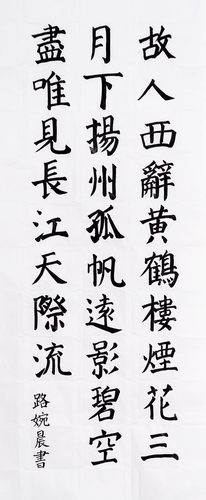 故人西辭黄鶴樓煙花三
月下揚州孤帆遠影碧空
盡唯見長江天際流
路婉晨書